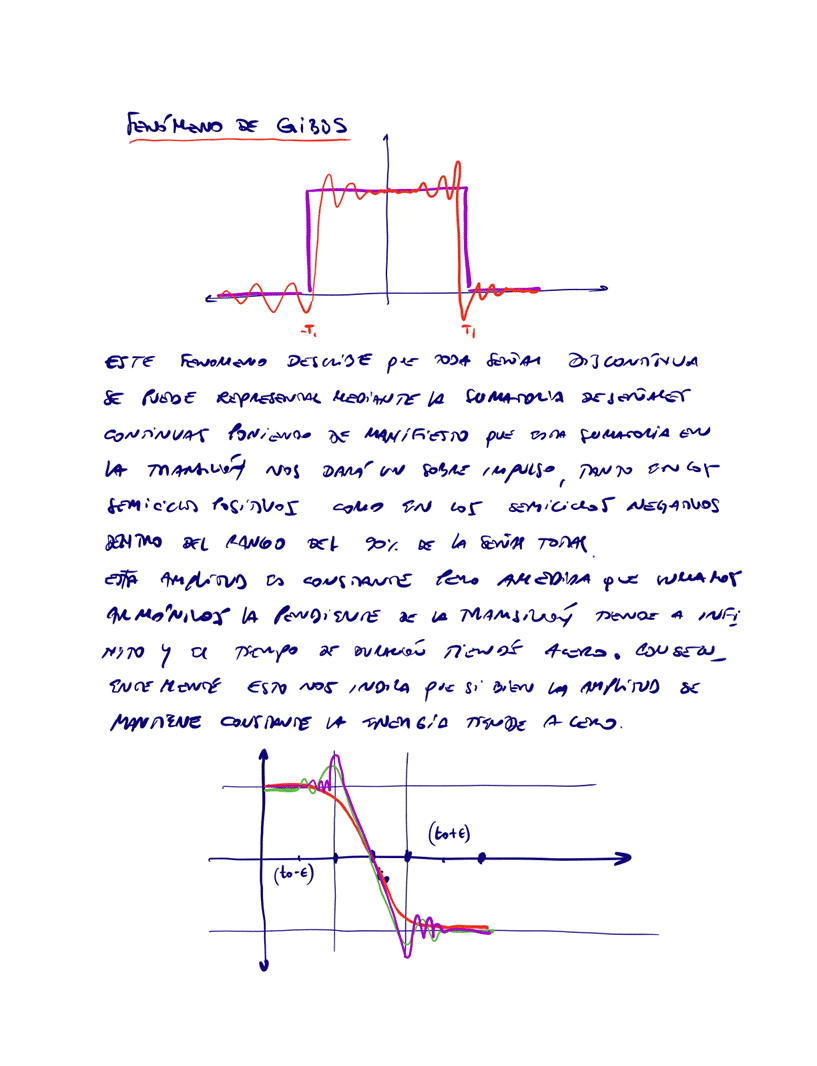 FENÓMENO DE GIBBS
-T₁ T₁
ESTE FENOMENO DESCRIBE QUE TODA SEÑAL DISCONTINUA
SE PUEDE REPRESENTAR MEDIANTE LA SUMATORIA DE SEÑALES
CONTINUAS PONIENDO DE MANIFIESTO QUE ESTA SUMATORIA EN
LA TRANSICIÓN NOS DARÁ UN SOBRE IMPULSO, TANTO EN LOS
SEMICICLOS POSITIVOS COMO EN LOS SEMICICLOS NEGATIVOS
DENTRO DEL RANGO DEL % DE LA SEÑAL TOTAL.
ESTA AMPLITUD ES CONSTANTE PERO A MEDIDA QUE SUMAMOS
ARMÓNICOS LA PENDIENTE DE LA TRANSICIÓN TIENDE A INFI
NITO Y EL TIEMPO DE DURACIÓN TIENDE A CERO. CONSECU_
ENTEMENTE ESTO NOS INDICA QUE SI BIEN LA AMPLITUD SE
MANTIENE CONSTANTE LA ENERGÍA TIENDE A CERO.
(to+ϵ)
(to-ϵ) to